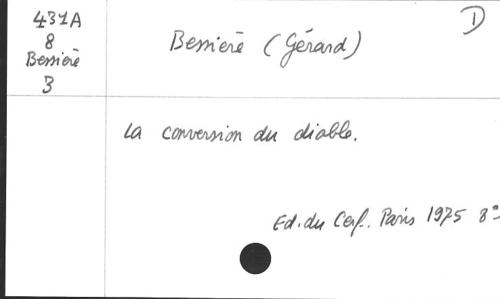 431A
8
Bessière
3
Bessière (Gérard)
D
La conversion du diable.
Ed. du Cerf. Paris 1975 8°